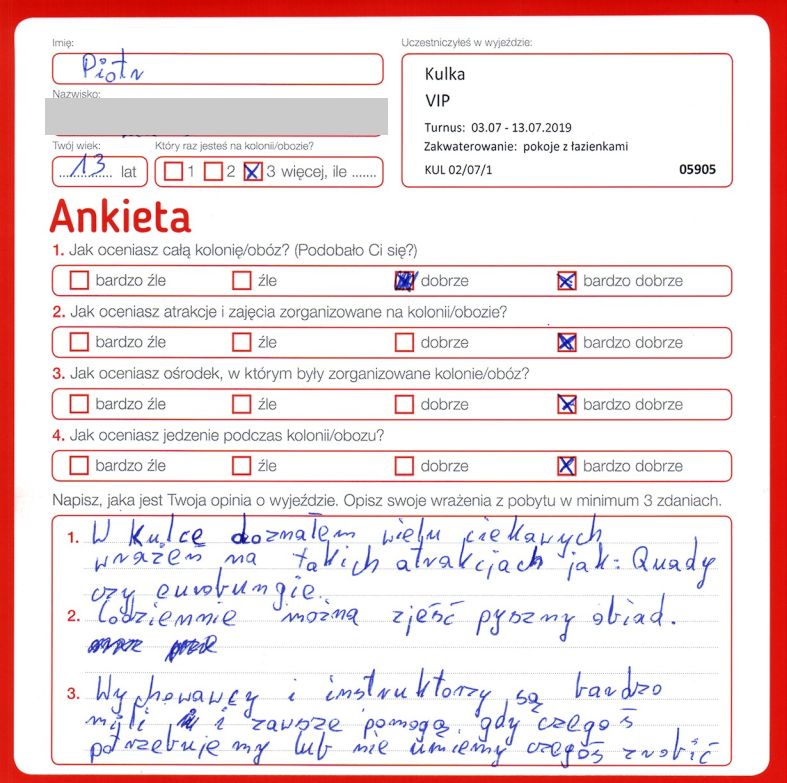 Imię:
Piotr
Uczestniczyłeś w wyjeździe:
Kulka
VIP
Turnus: 03.07 - 13.07.2019
Zakwaterowanie: pokoje z łazienkami
KUL 02/07/1 05905
Nazwisko:
Twój wiek:
13 lat
Który raz jesteś na kolonii/obozie?
1 2 3 więcej, ile .......
Ankieta
1. Jak oceniasz całą kolonię/obóz? (Podobało Ci się?)
bardzo źle źle dobrze bardzo dobrze
2. Jak oceniasz atrakcje i zajęcia zorganizowane na kolonii/obozie?
bardzo źle źle dobrze bardzo dobrze
3. Jak oceniasz ośrodek, w którym były zorganizowane kolonie/obóz?
bardzo źle źle dobrze bardzo dobrze
4. Jak oceniasz jedzenie podczas kolonii/obozu?
bardzo źle źle dobrze bardzo dobrze
Napisz, jaka jest Twoja opinia o wyjeździe. Opisz swoje wrażenia z pobytu w minimum 3 zdaniach.
1. W Kulce doznałem wielu ciekawych
wrażeń na takich atrakcjach jak: Quady
czy eurobungie.
2. Codziennie można zjeść pyszny obiad.
3. Wychowawcy i instruktorzy są bardzo
mili i zawsze pomogą gdy czegoś
potrzebujemy lub nie umiemy czegoś zrobić